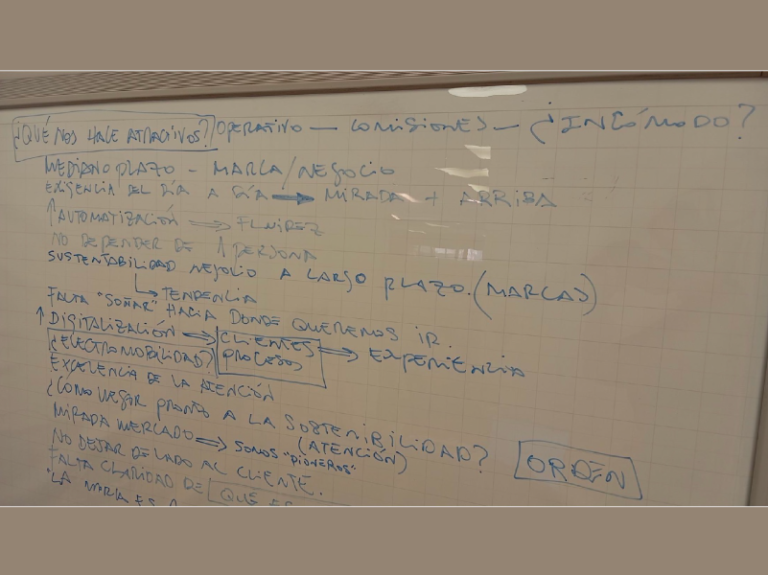 ¿QUÉ NOS HACE ATRACTIVOS? OPERATIVO — COMISIONES — ¿INCÓMODO?
MEDIANO PLAZO - MARCA/NEGOCIO
EXIGENCIA DEL DÍA A DÍA → MIRADA + ARRIBA
↑ AUTOMATIZACIÓN ⇒ FLUIDEZ
NO DEPENDER DE 1 PERSONA
SUSTENTABILIDAD NEGOCIO A LARGO PLAZO. (MARCAS)
↳ TENDENCIA
FALTA "SOÑAR" HACIA DONDE QUEREMOS IR.
↑ DIGITALIZACIÓN ⇒ CLIENTES PROCESOS ⇒ EXPERIENCIA
¿ELECTROMOBILIDAD?
EXCELENCIA DE LA ATENCIÓN
¿CÓMO LLEGAR PRONTO A LA SOSTENIBILIDAD?
MIRADA MERCADO ⇒ SOMOS "PIONEROS"
(ATENCIÓN)
NO DEJAR DE LADO AL CLIENTE.
FALTA CLARIDAD DE QUÉ ES
"LA
ORDEN